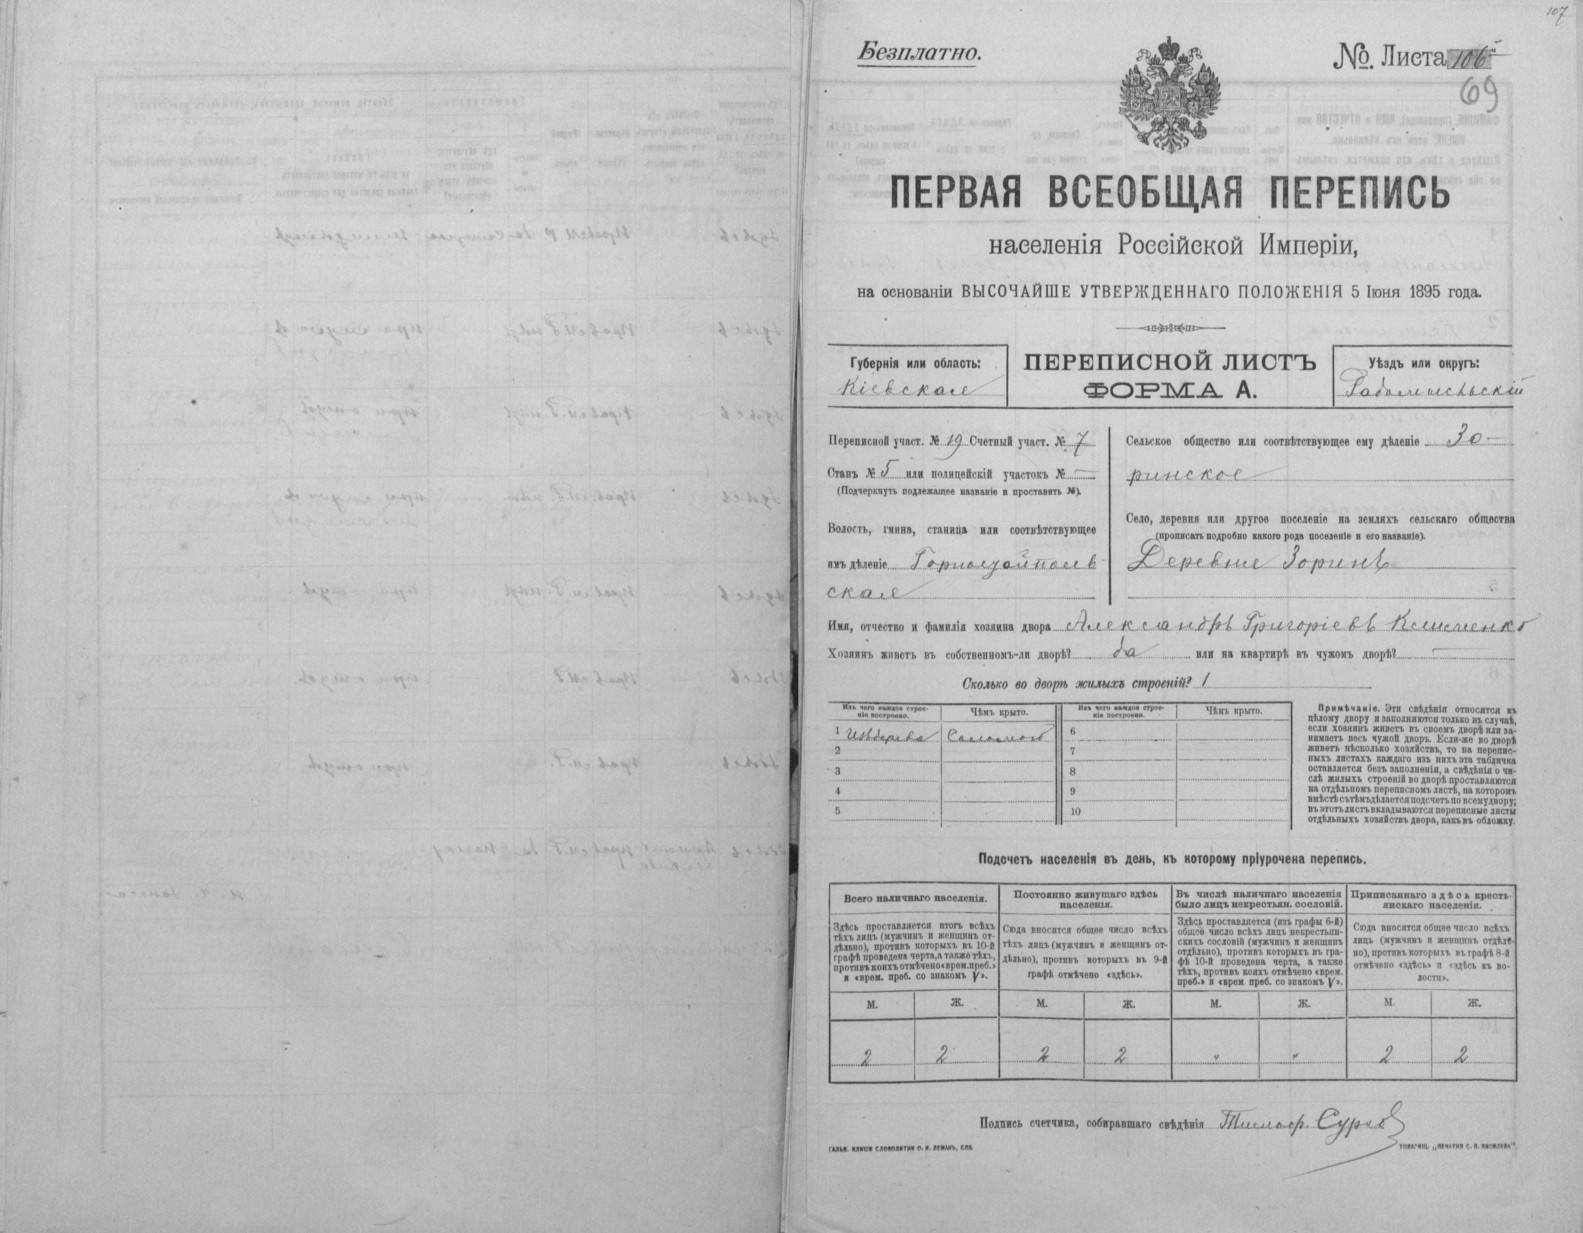 107
Безплатно.
№. Листа 106
69
ПЕРВАЯ ВСЕОБЩАЯ ПЕРЕПИСЬ
населенія Россійской Имперіи,
на основаніи ВЫСОЧАЙШЕ УТВЕРЖДЕННАГО ПОЛОЖЕНІЯ 5 Іюня 1895 года.
Губернія или область:
Кіевская
ПЕРЕПИСНОЙ ЛИСТЪ
ФОРМА А.
Уѣздъ или округъ:
Радомысльскій
Переписной участ. № 19 Счетный участ. № 7
Станъ № 5 или полицейскій участокъ № —
(Подчеркнуть подлежащее названіе и проставить №).
Волость, гмина, станица или соотвѣтствующее
имъ дѣленіе
ская
Сельское общество или соотвѣтствующее ему дѣленіе Зо-
ринское
Село, деревня или другое поселеніе на земляхъ сельскаго общества
(прописать подробно какого рода поселеніе и его названіе).
Деревня Зоринъ
Имя, отчество и фамилія хозяина двора Александръ Григоріевъ Клименко
Хозяинъ живетъ въ собственномъ-ли дворѣ? да или на квартирѣ въ чужомъ дворѣ? —
Сколько во дворѣ жилыхъ строеній? 1
Изъ чего каждое строе-
ніе построено.
Чѣмъ крыто.
1 Изъ дерева Соломою
2
3
4
5
Изъ чего каждое строе-
ніе построено.
Чѣмъ крыто.
6
7
8
9
10
Примѣчаніе. Эти свѣдѣнія относятся къ
цѣлому двору и заполняются только въ случаѣ,
если хозяинъ живетъ въ своемъ дворѣ или за-
нимаетъ весь чужой дворъ. Если-же во дворѣ
живетъ нѣсколько хозяйствъ, то на перепис-
ныхъ листахъ каждаго изъ нихъ эта табличка
оставляется безъ заполненія, а свѣдѣнія о чи-
слѣ жилыхъ строеній во дворѣ проставляются
на отдѣльномъ переписномъ листѣ, на которомъ
вмѣстѣ съ тѣмъ дѣлается подсчетъ по всему двору;
въ этотъ листъ вкладываются переписные листы
отдѣльныхъ хозяйствъ двора, какъ въ обложку.
Подсчетъ населенія въ день, къ которому пріурочена перепись.
Всего наличнаго населенія.
Здѣсь проставляется итогъ всѣхъ
тѣхъ лицъ (мужчинъ и женщинъ от-
дѣльно), противъ которыхъ въ 10-й
графѣ проведена черта, а также тѣхъ,
противъ коихъ отмѣчено «врем. преб.»
и «врем. преб. со знакомъ V».
Постоянно живущаго здѣсь
населенія.
Сюда вносится общее число всѣхъ
тѣхъ лицъ (мужчинъ и женщинъ от-
дѣльно), противъ которыхъ въ 9-й
графѣ отмѣчено «здѣсь».
Въ числѣ наличнаго населенія
было лицъ некрестьян. сословій.
Здѣсь проставляется (изъ графы 6-й)
общее число всѣхъ лицъ некрестьян-
скихъ сословій (мужчинъ и женщинъ
отдѣльно), противъ которыхъ въ гра-
фѣ 10-й проведена черта, а также
тѣхъ, противъ коихъ отмѣчено «врем.
преб.» и «врем. преб. со знакомъ V».
Приписаннаго здѣсь кресть-
янскаго населенія.
Сюда вносится общее число всѣхъ
лицъ (мужчинъ и женщинъ отдѣль-
но), противъ которыхъ въ графѣ 8-й
отмѣчено «здѣсь» и «здѣсь въ во-
лости».
М. Ж. М. Ж. М. Ж. М. Ж.
2 2 2 2 " " 2 2
Подпись счетчика, собиравшаго свѣдѣнія
ГАЛЬВ. КЛИШЕ СЛОВОЛИТНИ О. И. ЛЕМАНЪ, СПБ
ТОВАРИЩ. „ПЕЧАТНЯ С. П. ЯКОВЛЕВА“.